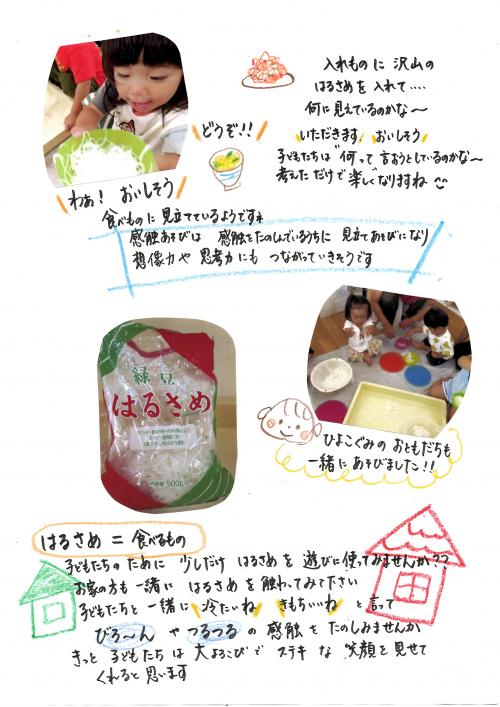 入れものに 沢山の
はるさめを入れて‥‥
何に見えているのかな〜
いただきます おいしそう
子どもたちは "何って 言おうとしているのかな〜
考えただけで "楽しく"なりますね
どうぞ!!
わぁ! おいしそう
食べものに 見立てているようですね
感触あそびは 感触をたのしんでいるうちに 見立てあそびになり
想像力や 思考力にも つながっていきそうです
緑豆
はるさめ
500g
ひよこぐみの おともだちも
一緒に あそびました!!
はるさめ = 食べるもの
子どもたちの ために 少しだけ はるさめを 遊びに使ってみませんか??
お家の方も 一緒に はるさめを 触わってみて下さい
子どもたちと 一緒に 冷たいね きもちいいね と言って
びろ〜ん や つるつる の 感触を たのしみませんか
きっと 子どもたちは 大よろこびで ステキ な 笑顔を 見せて
くれると 思います